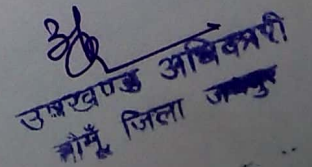 उपखण्ड अधिकारी
चौमूँ जिला जयपुर